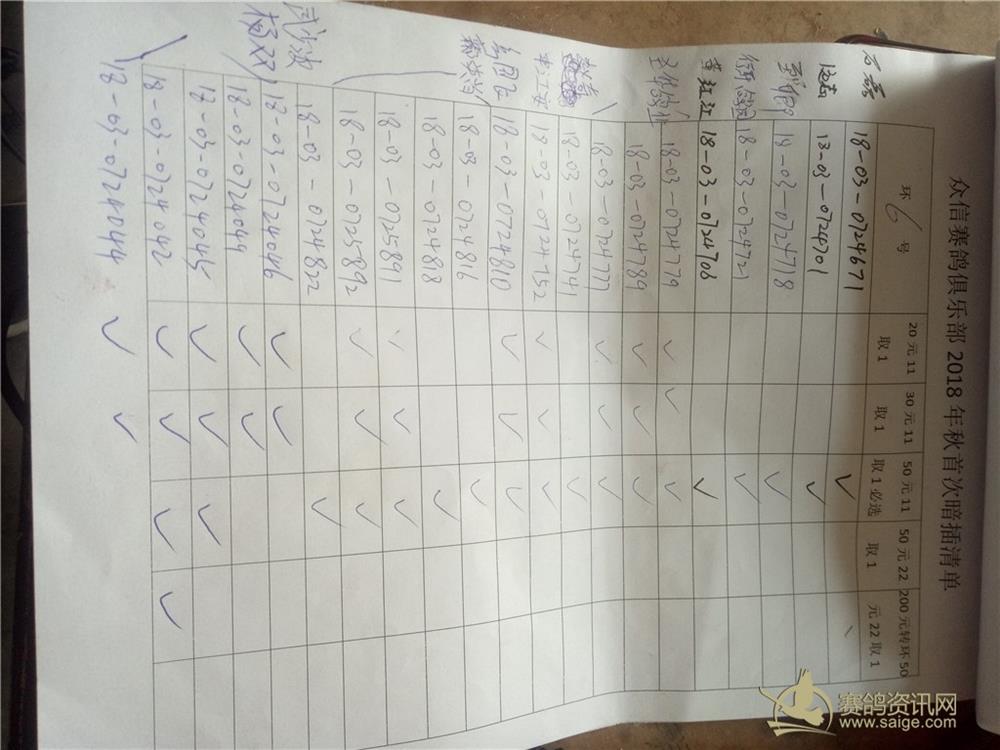 众信赛鸽俱乐部2018年秋首次暗插清单
环号 20元11取1 30元11取1 50元11取1必选 50元22取1 200元转环50元22取1
6
石磊 18-03-0724671 ✓
18-03-0724701 ✓
18-03-0724718 ✓
18-03-0724721 ✓
18-03-0724706 ✓
18-03-0724779 ✓ ✓ ✓
18-03-0724789 ✓ ✓ ✓
18-03-0724777 ✓ ✓ ✓
18-03-0724741 ✓
18-03-0724752 ✓ ✓ ✓
18-03-0724810 ✓ ✓ ✓
18-03-0724816 ✓
18-03-0724818 ✓
18-03-0725891 ✓ ✓ ✓
18-03-0725892 ✓ ✓ ✓
18-03-0724822 ✓
18-03-0724046 ✓ ✓
18-03-0724049 ✓ ✓
18-03-0724045 ✓ ✓ ✓
18-03-0724042 ✓ ✓ ✓ ✓
18-03-0724044 ✓ ✓
赛鸽资讯网
www.saige.com